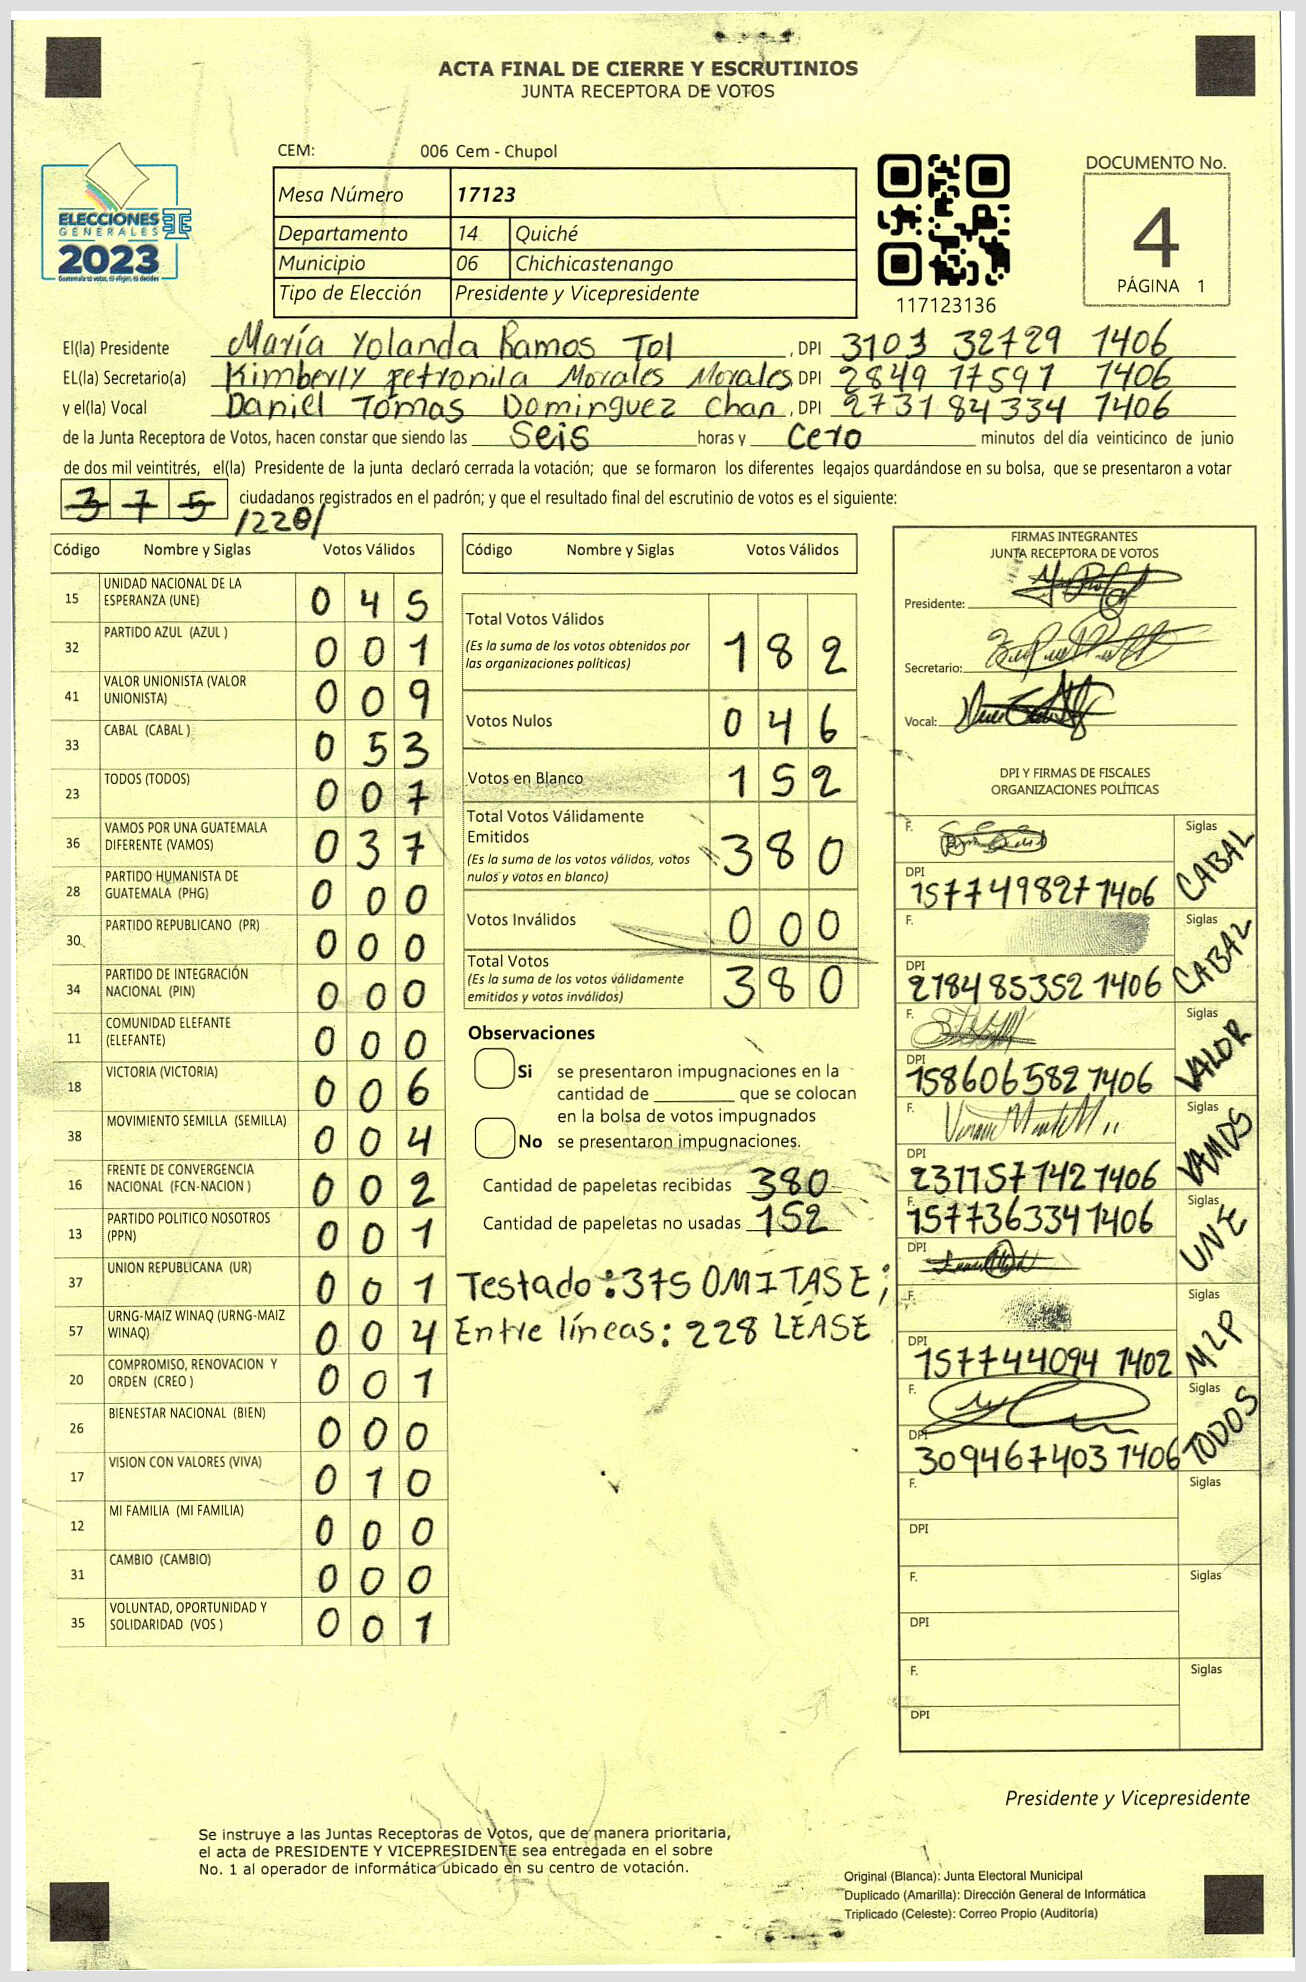 ACTA FINAL DE CIERRE Y ESCRUTINIOS
JUNTA RECEPTORA DE VOTOS
CEM: 006 Cem - Chupol
Mesa Número 17123
Departamento 14 Quiché
Municipio 06 Chichicastenango
Tipo de Elección Presidente y Vicepresidente
ELECCIONES
GENERALES
2023
117123136
DOCUMENTO No.
4
PÁGINA 1
El(la) Presidente María Yolanda Ramos Tol, DPI 3103 32729 1406
EL(la) Secretario(a) Kimberly Petronila Morales Morales DPI 2849 17597 1406
y el(la) Vocal Daniel Tomas Dominguez Chan, DPI 2731 84334 1406
de la Junta Receptora de Votos, hacen constar que siendo las Seis horas y Cero minutos del día veinticinco de junio
de dos mil veintitrés, el(la) Presidente de la junta declaró cerrada la votación; que se formaron los diferentes legajos quardándose en su bolsa, que se presentaron a votar
375 ciudadanos registrados en el padrón; y que el resultado final del escrutinio de votos es el siguiente:
/228/
Código Nombre y Siglas Votos Válidos
15 UNIDAD NACIONAL DE LA ESPERANZA (UNE) 0 4 5
32 PARTIDO AZUL (AZUL ) 0 0 1
41 VALOR UNIONISTA (VALOR UNIONISTA) 0 0 9
33 CABAL (CABAL ) 0 5 3
23 TODOS (TODOS) 0 0 7
36 VAMOS POR UNA GUATEMALA DIFERENTE (VAMOS) 0 3 7
28 PARTIDO HUMANISTA DE GUATEMALA (PHG) 0 0 0
30 PARTIDO REPUBLICANO (PR) 0 0 0
34 PARTIDO DE INTEGRACIÓN NACIONAL (PIN) 0 0 0
11 COMUNIDAD ELEFANTE (ELEFANTE) 0 0 0
18 VICTORIA (VICTORIA) 0 0 6
38 MOVIMIENTO SEMILLA (SEMILLA) 0 0 4
16 FRENTE DE CONVERGENCIA NACIONAL (FCN-NACION ) 0 0 2
13 PARTIDO POLITICO NOSOTROS (PPN) 0 0 1
37 UNION REPUBLICANA (UR) 0 0 1
57 URNG-MAIZ WINAQ (URNG-MAIZ WINAQ) 0 0 4
20 COMPROMISO, RENOVACION Y ORDEN (CREO ) 0 0 1
26 BIENESTAR NACIONAL (BIEN) 0 0 0
17 VISION CON VALORES (VIVA) 0 1 0
12 MI FAMILIA (MI FAMILIA) 0 0 0
31 CAMBIO (CAMBIO) 0 0 0
35 VOLUNTAD, OPORTUNIDAD Y SOLIDARIDAD (VOS ) 0 0 1
Código Nombre y Siglas Votos Válidos
Total Votos Válidos 1 8 2
(Es la suma de los votos obtenidos por
las organizaciones políticas)
Votos Nulos 0 4 6
Votos en Blanco 1 5 2
Total Votos Válidamente
Emitidos 3 8 0
(Es la suma de los votos válidos, votos
nulos y votos en blanco)
Votos Inválidos 0 0 0
Total Votos 3 8 0
(Es la suma de los votos válidamente
emitidos y votos inválidos)
Observaciones
Si se presentaron impugnaciones en la
cantidad de ________ que se colocan
en la bolsa de votos impugnados
No se presentaron impugnaciones.
Cantidad de papeletas recibidas 380
Cantidad de papeletas no usadas 152
Testado: 375 OMITASE;
Entre líneas: 228 LEASE
FIRMAS INTEGRANTES
JUNTA RECEPTORA DE VOTOS
Presidente:
Secretario:
Vocal:
DPI Y FIRMAS DE FISCALES
ORGANIZACIONES POLÍTICAS
F. Siglas CABAL
DPI 157749827 1406
F. Siglas CABAL
DPI 2784 85352 1406
F. Siglas VALOR
DPI 158606582 1406
F. Siglas VAMOS
DPI 231157142 1406
F. 157736334 1406 Siglas UNE
DPI
F. Siglas MLP
DPI 157744094 1402
F. Siglas TODOS
DPI 309467403 1406
F. Siglas
DPI
F. Siglas
DPI
F. Siglas
DPI
Presidente y Vicepresidente
Se instruye a las Juntas Receptoras de Votos, que de manera prioritaria,
el acta de PRESIDENTE Y VICEPRESIDENTE sea entregada en el sobre
No. 1 al operador de informática ubicado en su centro de votación.
Original (Blanca): Junta Electoral Municipal
Duplicado (Amarilla): Dirección General de Informática
Triplicado (Celeste): Correo Propio (Auditoría)